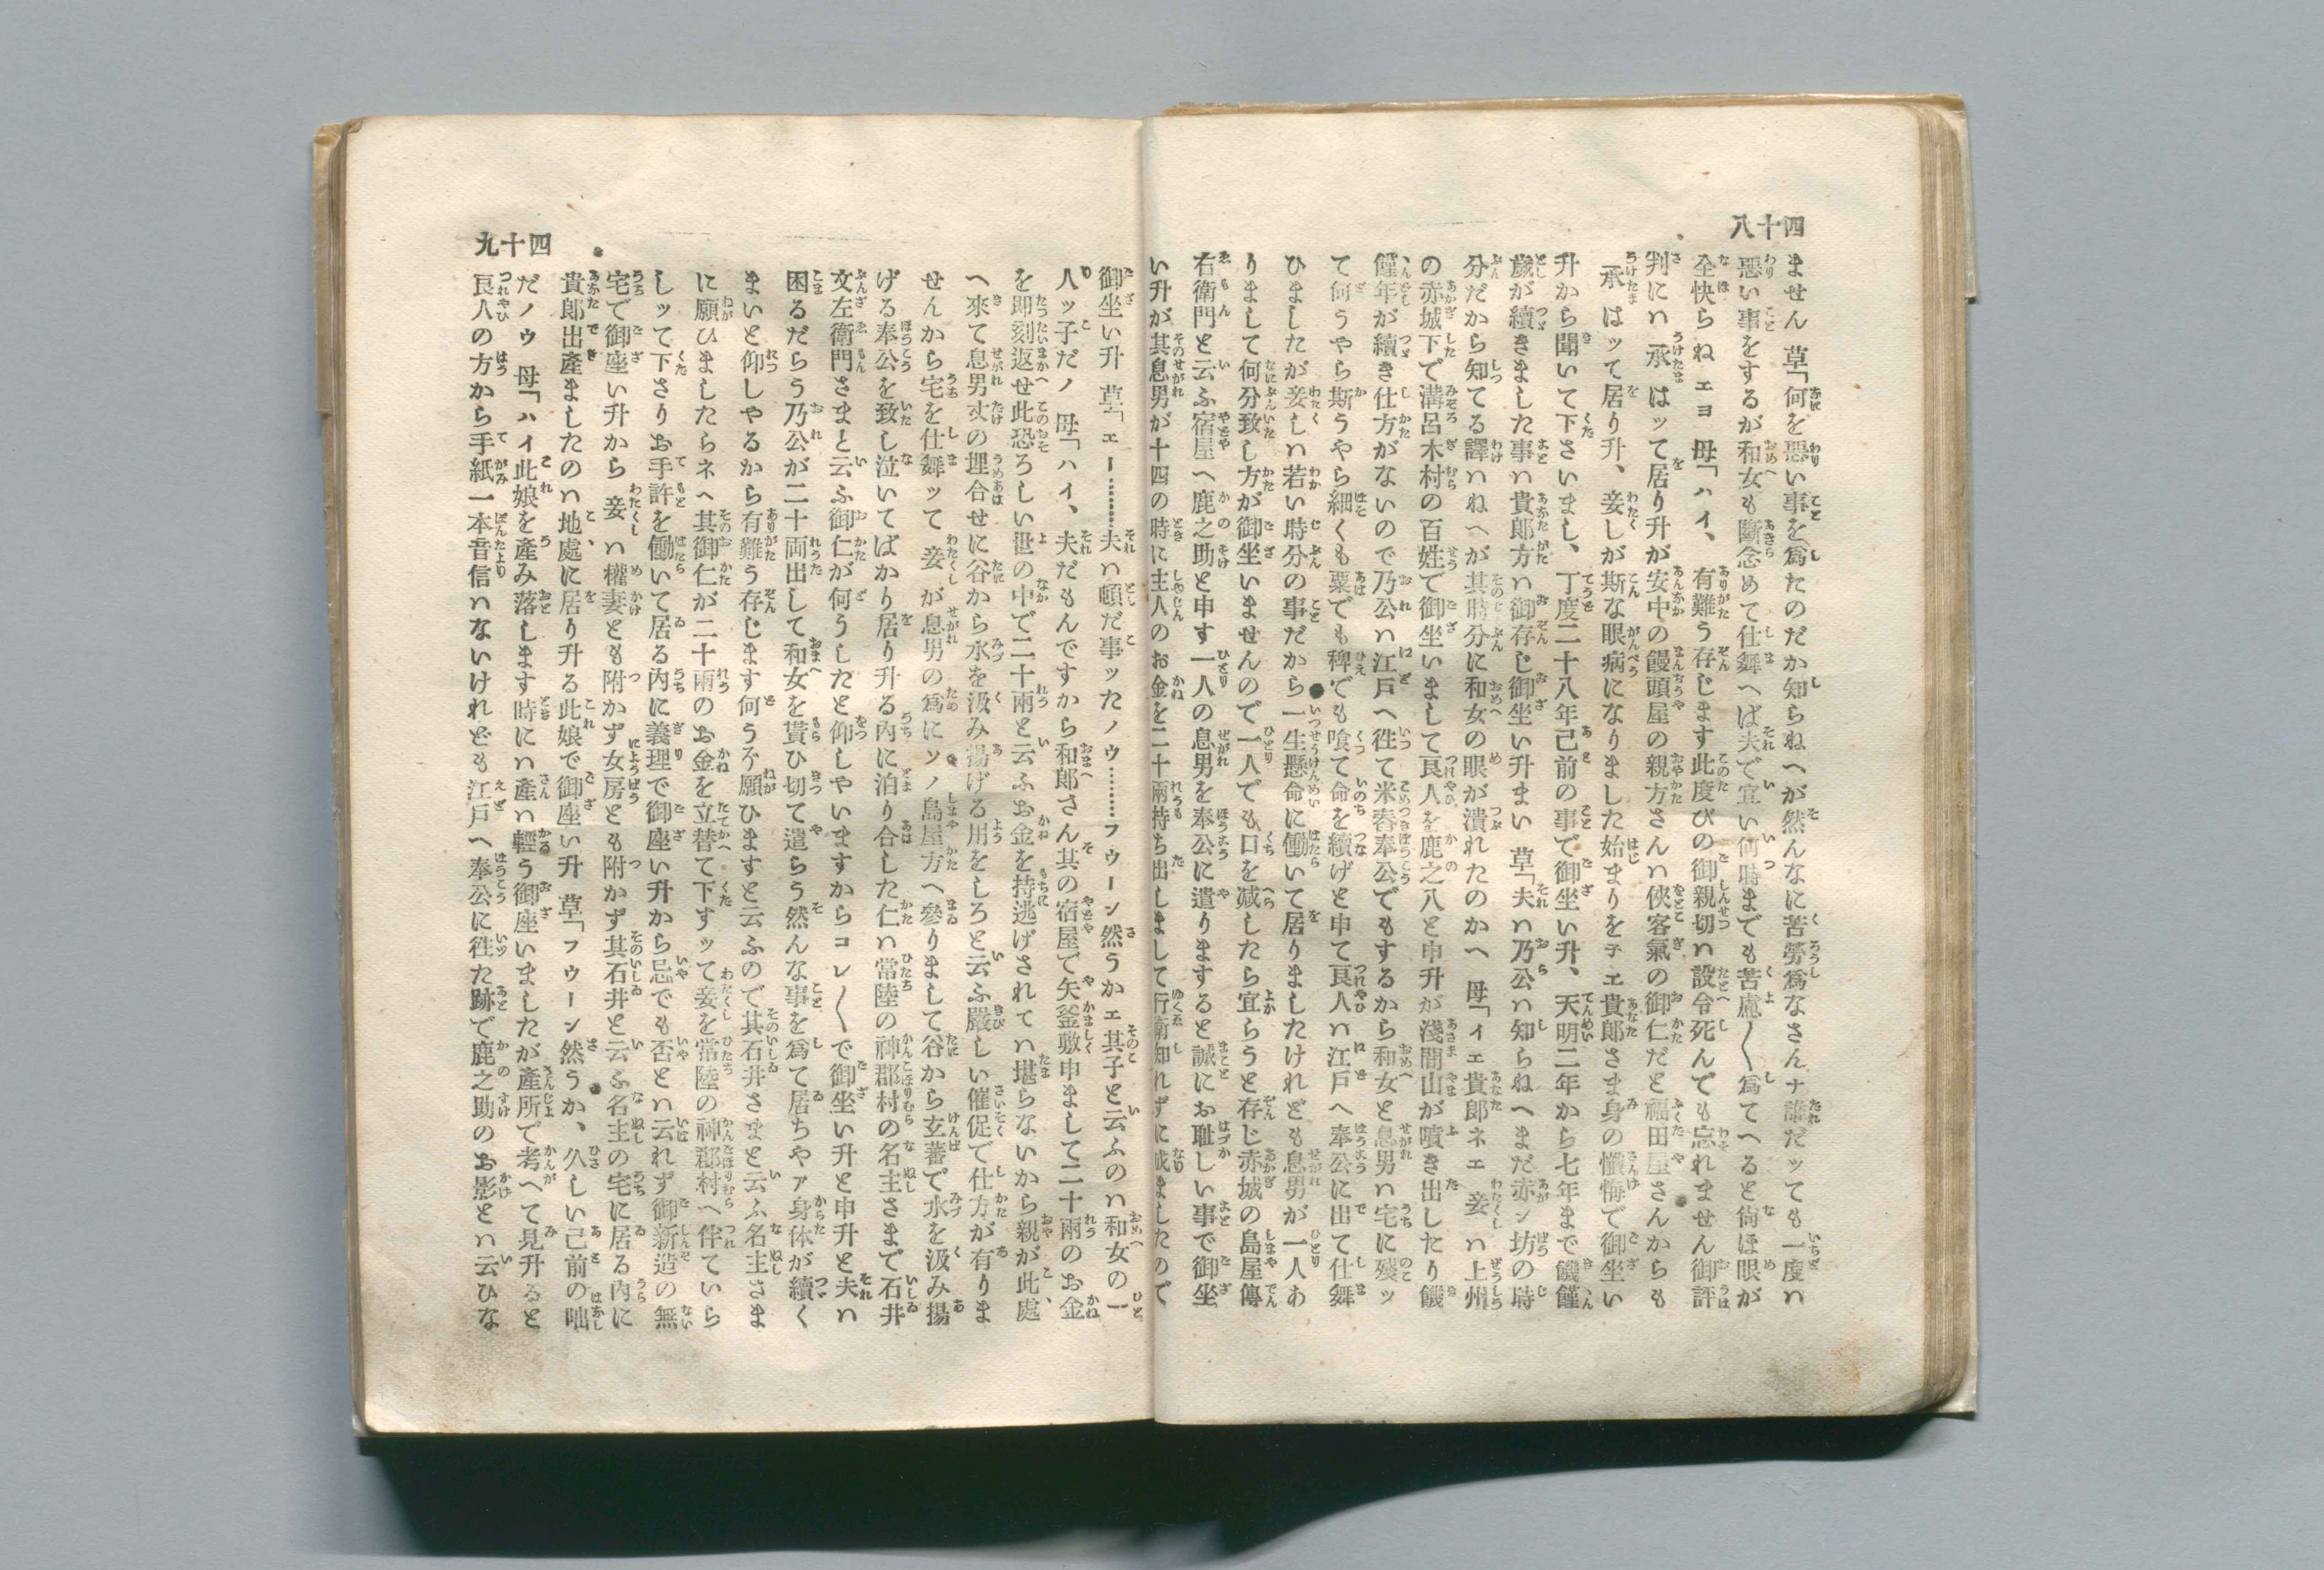 四十八
ません 草「何を悪い事を爲たのだか知らねへが然んなに苦勞爲なさんナ誰だッても一度ハ
悪い事をするが和女も斷念めて仕舞へば夫で宜い何時までも苦慮〳〵爲てへると尙ほ眼が
全快らねエヨ 母「ハイ、有難う存じます此度びの御親切ハ設令死んでも忘れません御評
判にハ承はッて居り升が安中の饅頭屋の親方さんハ俠客氣の御仁だと福田屋さんからも
承はッて居り升、妾しが斯な眼病になりました始まりをテエ貴郎さま身の懺悔で御坐い
升から聞いて下さいまし、丁度二十八年己前の事で御坐い升、天明二年から七年まで饑饉
歲が續きました事ハ貴郎方ハ御存じ御坐い升まい 草「夫ハ乃公ハ知らねへまだ赤ン坊の時
分だから知てる譯ハねへが其時分に和女の眼が潰れたのかへ 母「イエ貴郎ネエ 妾ハ上州
の赤城下で溝呂木村の百姓で御坐いまして良人を鹿之八と申升が淺間山が噴き出したり饑
饉年が續き仕方がないので乃公ハ江戸へ徃て米舂奉公でもするから和女と息男ハ宅に殘ッ
て何うやら斯うやら細くも粟でも稗でも喰て命を續げと申て良人ハ江戸へ奉公に出て仕舞
ひましたが妾しハ若い時分の事だから一生懸命に働いて居りましたけれども息男が一人あ
りまして何分致し方が御坐いませんので一人でも口を减したら宜らうと存じ赤城の島屋傳
右衛門と云ふ宿屋へ鹿之助と申す一人の息男を奉公に遣りますると誠にお耻しい事で御坐
い升が其息男が十四の時に主人のお金を二十兩持ち出しまして行衛知れずに成ましたので
四十九
御坐い升 草「エー………夫ハ頓だ事ッたノウ………フウーン然うかエ其子と云ふのハ和女の一
人ッ子だノ 母「ハイ、夫だもんですから和郎さん其の宿屋で矢釜敷申まして二十兩のお金
を即刻返せ此恐ろしい世の中で二十兩と云ふお金を持逃げされてハ堪らないから親が此處
へ來て息男丈の埋合せに谷から水を汲み揚げる用をしろと云ふ嚴しい催促で仕方が有りま
せんから宅を仕舞ッて 妾が息男の爲にソノ島屋方へ參りまして谷から玄蕃で水を汲み揚
げる奉公を致し泣いてばかり居り升る內に泊り合した仁ハ常陸の神郡村の名主さまで石井
文左衛門さまと云ふ御仁が何うしたと仰しやいますからコレ〳〵で御坐い升と申升と夫ハ
困るだらう乃公が二十両出して和女を貰ひ切て遣らう然んな事を爲て居ちやァ身体が續く
まいと仰しやるから有難う存じます何うぞ願ひますと云ふので其石井さまと云ふ名主さま
に願ひましたらネへ其御仁が二十兩のお金を立替て下すッて妾を常陸の神郡村へ伴ていら
しッて下さりお手許を働いて居る內に義理で御座い升から忌でも否とハ云れず御新造の無
宅で御座い升から 妾ハ權妻とも附かず女房とも附かず其石井と云ふ名主の宅に居る內に
貴郎出產ましたのハ地處に居り升る此娘で御座い升 草「フウーン然うか、久しい己前の咄
だノウ 母「ハイ此娘を產み落します時にハ產ハ輕う御座いましたが產所で考へて見升ると
良人の方から手紙一本音信ハないけれども江戸へ奉公に徃た跡で鹿之助のお影とハ云ひな